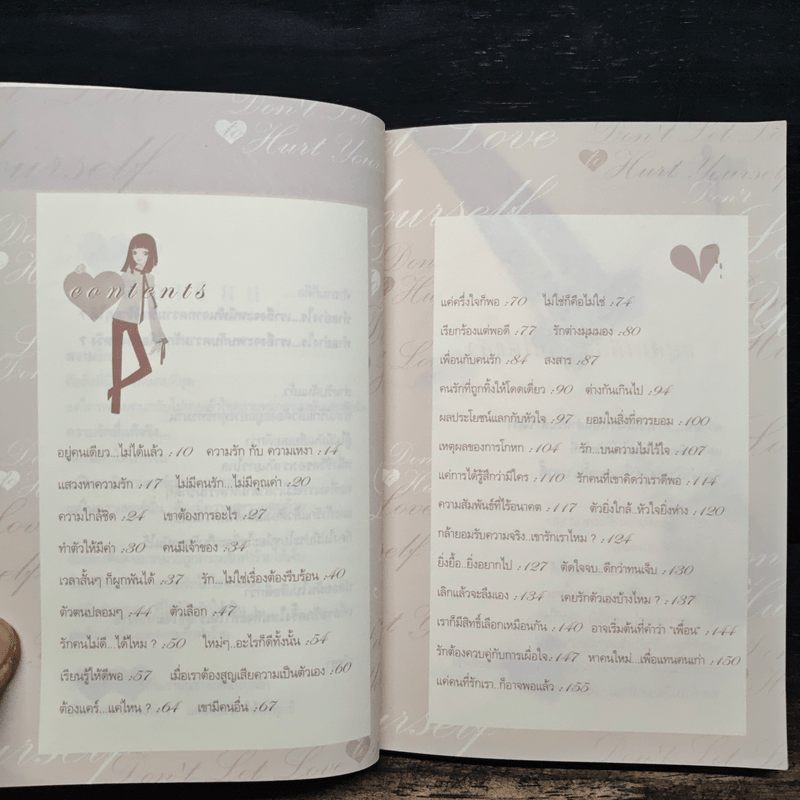 Don't Let Love
Hurt Yourself
contents
อยู่คนเดียว...ไม่ได้แล้ว :10 ความรัก กับ ความเหงา :14
แสวงหาความรัก :17 ไม่มีคนรัก...ไม่มีคุณค่า :20
ความใกล้ชิด :24 เขาต้องการอะไร :27
ทำตัวให้มีค่า :30 คนมีเจ้าของ :34
เวลาสั้นๆ ก็ผูกพันได้ :37 รัก...ไม่ใช่เรื่องต้องรีบร้อน :40
ตัวตนปลอมๆ :44 ตัวเลือก :47
รักคนไม่ดี...ได้ไหม ? :50 ใหม่ๆ..อะไรก็ดีทั้งนั้น :54
เรียนรู้ให้ดีพอ :57 เมื่อเราต้องสูญเสียความเป็นตัวเอง :60
ต้องแคร์...แค่ไหน ? :64 เขามีคนอื่น :67
แค่ครึ่งใจก็พอ :70 ไม่ใช่ก็คือไม่ใช่ :74
เรียกร้องแต่พอดี :77 รักต่างมุมมอง :80
เพื่อนกับคนรัก :84 สงสาร :87
คนรักที่ถูกทิ้งให้โดดเดี่ยว :90 ต่างกันเกินไป :94
ผลประโยชน์แลกกับหัวใจ :97 ยอมในสิ่งที่ควรยอม :100
เหตุผลของการโกหก :104 รัก...บนความไม่ไว้ใจ :107
แค่การได้รู้สึกว่ามีใคร :110 รักคนที่เขาคิดว่าเราดีพอ :114
ความสัมพันธ์ที่ไร้อนาคต :117 ตัวยิ่งใกล้..หัวใจยิ่งห่าง :120
กล้ายอมรับความจริง..เขารักเราไหม ? :124
ยิ่งยื้อ..ยิ่งอยากไป :127 ตัดใจจบ..ดีกว่าทนเจ็บ :130
เลิกแล้วจะลืมเอง :134 เคยรักตัวเองบ้างไหม ? :137
เราก็มีสิทธิ์เลือกเหมือนกัน :140 อาจเริ่มต้นที่คำว่า "เพื่อน" :144
รักต้องควบคู่กับการเผื่อใจ :147 หาคนใหม่...เพื่อแทนคนเก่า :150
แค่คนที่รักเรา..ก็อาจพอแล้ว :155